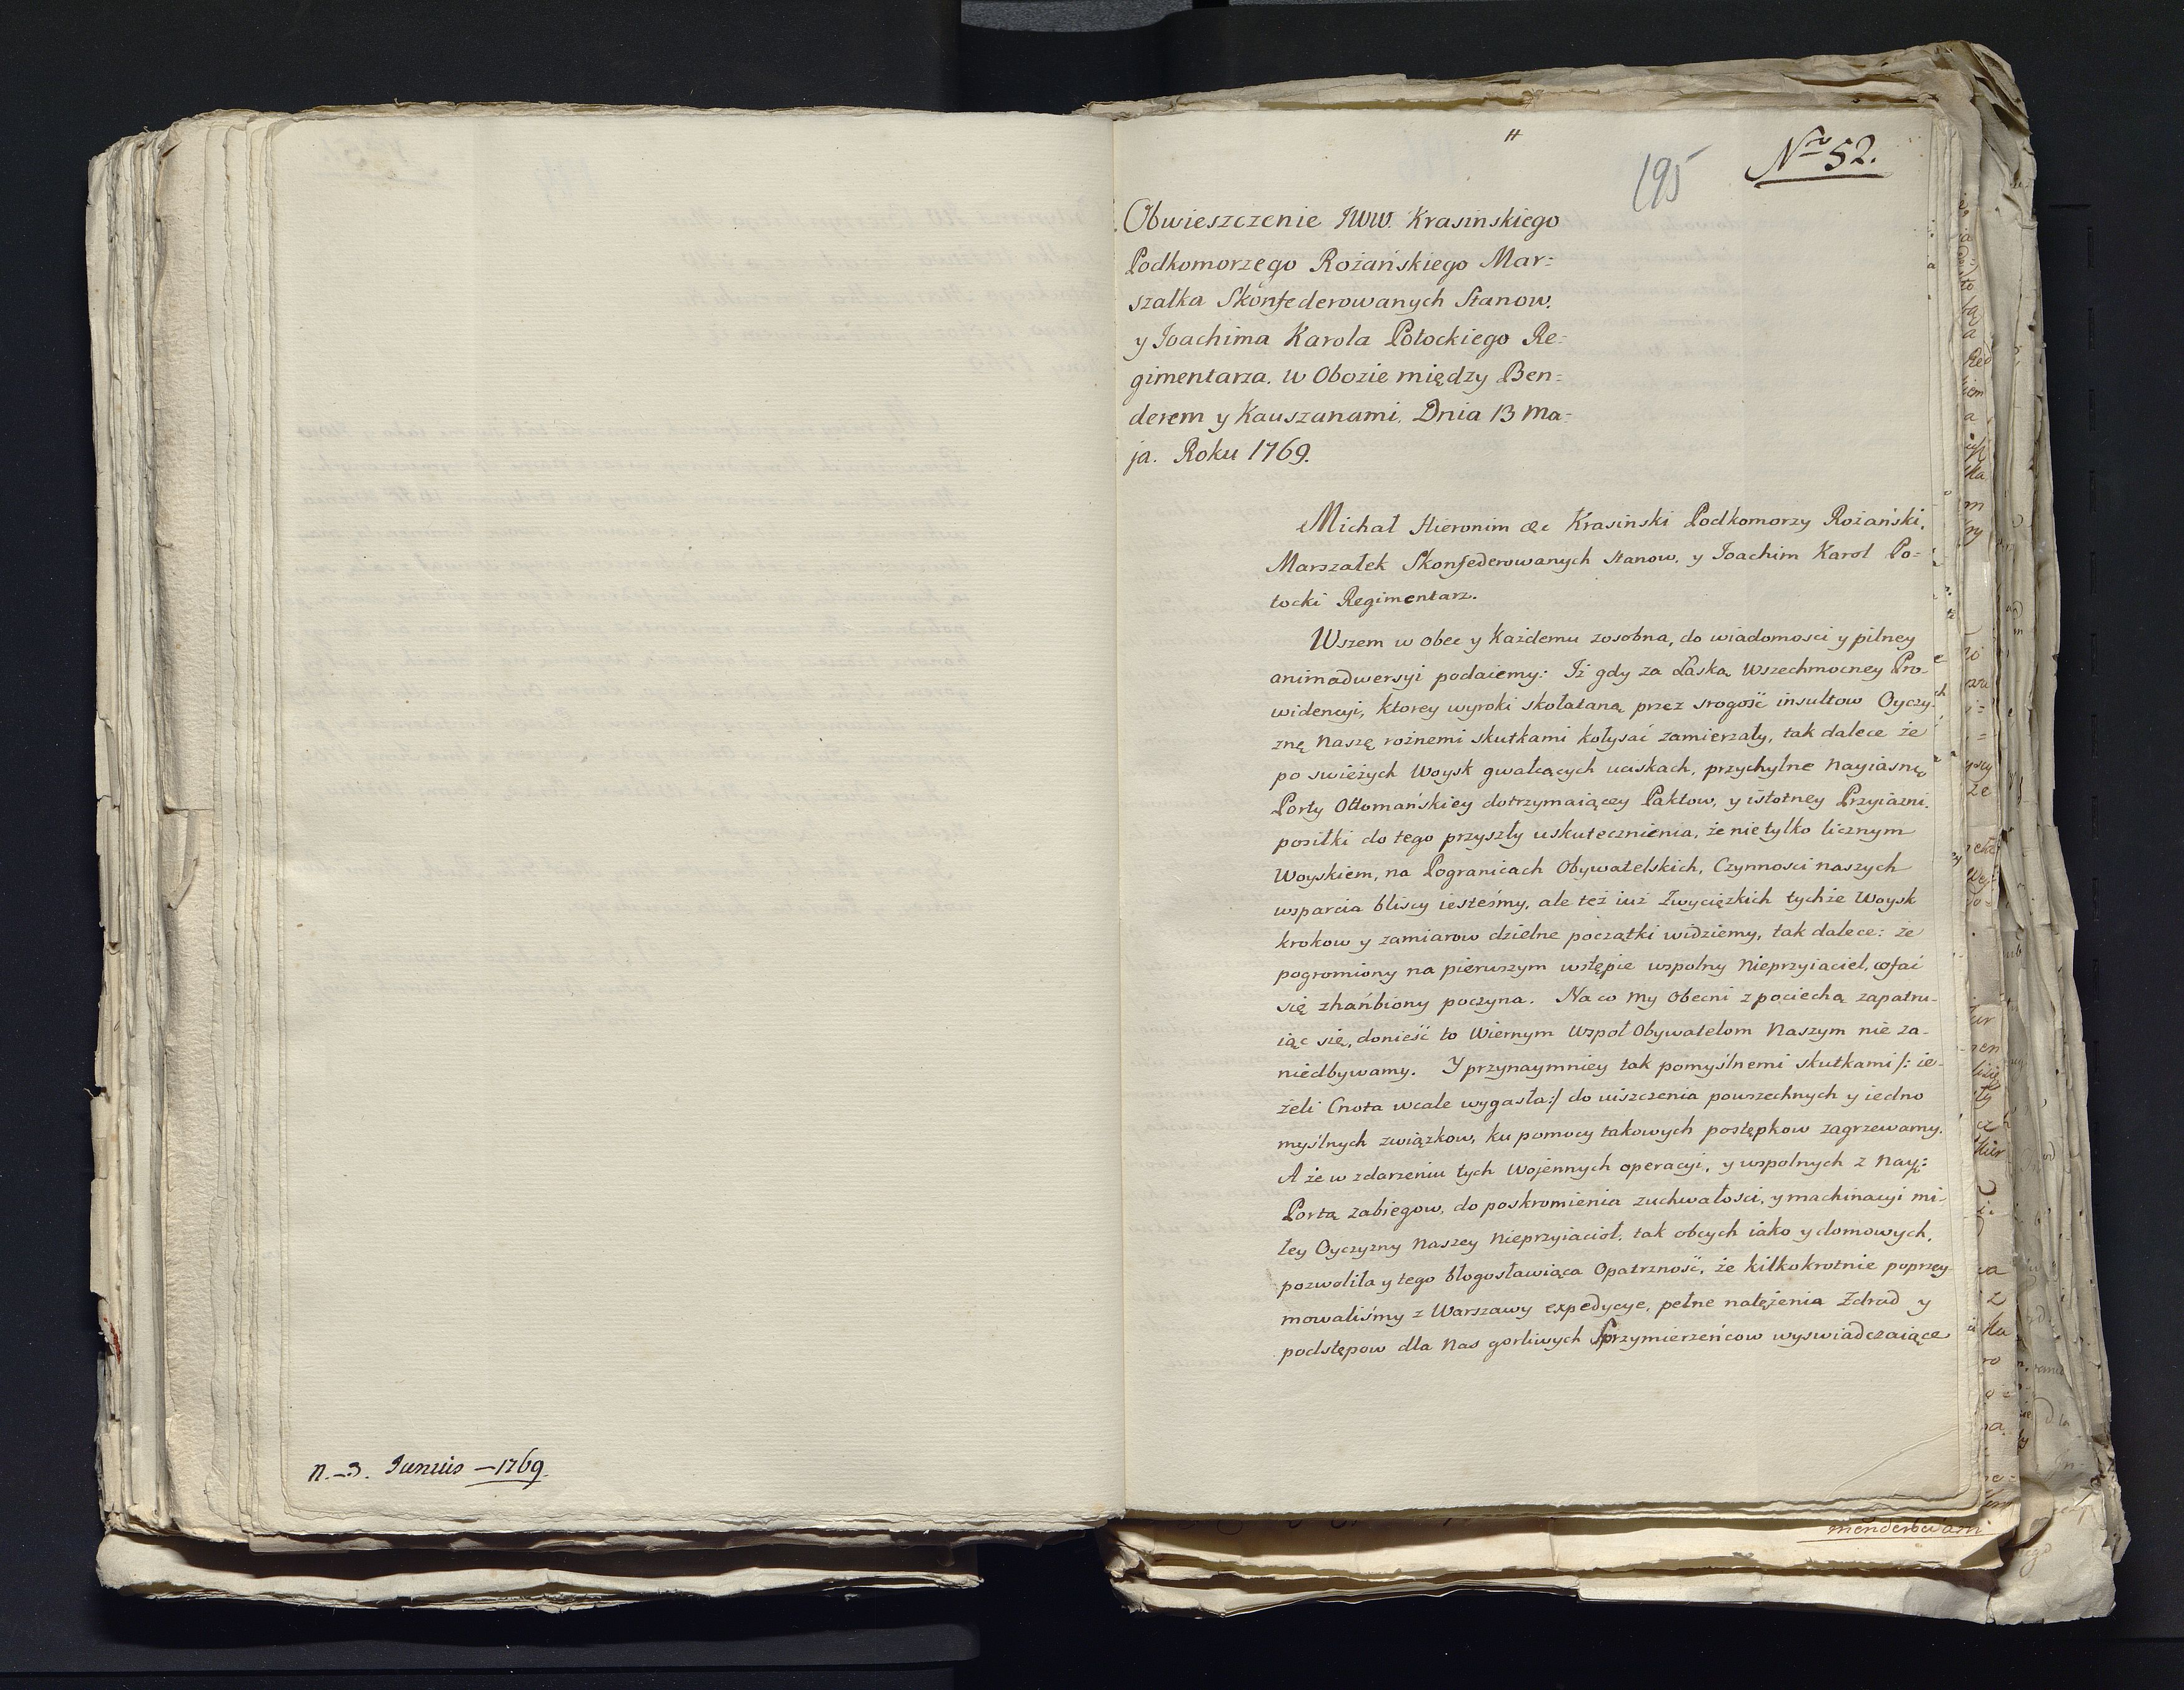 n.–3. Iunius –1769.
#
195
Nro 52.
Obwieszczenie JWW. Krasinskiego
Podkomorzego Rożańskiego Mar=
szałka Skonfederowanych Stanow.
y Joachima Karola Potockiego Re=
gimentarza. w Obozie między Ben=
derem y Kauszanami, Dnia 13 Ma=
ja. Roku 1769.
Michał Hieronim &c Krasinski Podkomorzy Rożański,
Marszałek Skonfederowanych Stanow, y Joachim Karol Po=
tocki Regimentarz.
Wszem w obec y Każdemu zosobna, do wiadomosci y pilney
animadwersyi podaiemy: Iż gdy za Łaską Wszechmocney Pro-
widencyi, ktorey wyroki skołataną przez srogość insultow Oyczy-
znę Naszę rożnemi skutkami kołysać zamierzały, tak dalece że
po swieżych Woysk gwałcących uciskach, przychylne Nayiasney
Porty Ottomańskiey dotrzymaiącey Paktow, y istotney Przyiazni.
posiłki do tego przyszły uskutecznienia, że nie tylko licznym
Woyskiem, na Pogranicach Obywatelskich, Czynnosci naszych
wsparcia bliscy iesteśmy, ale też iuż Zwycięzkich tychże Woysk
krokow y zamiarow dzielne początki widziemy, tak dalece: że
pogromiony na pierwszym wstępie wspolny Nieprzyiaciel, cofać
się zhańbiony poczyna. Na co My Obecni z pociechą zapatru-
iąc się, donieść to Wiernym Wspoł Obywatelom Naszym nie za-
niedbywamy. Y przynaymniey tak pomyślnemi skutkami /: ie-
żeli Cnota wcale wygasła:/ do uiszczenia powszechnych y iedno
myślnych związkow, ku pomocy takowych postępkow zagrzewamy.
A że w zdarzeniu tych Wojennych operacyi, y wspolnych z Nay:
Portą zabiegow, do poskromienia zuchwałosci, y machinacyi mi-
łey Oyczyzny Naszey Nieprzyiacioł, tak obcych iako y domowych,
pozwoliła y tego błogosławiąca Opatrzność, że kilkokrotnie poprzey-
mowaliśmy z Warszawy expedycye, pełne natężenia Zdrad y
podstępow dla Nas gorliwych Sprzymierzeńcow wyswiadczaiące
menderowami